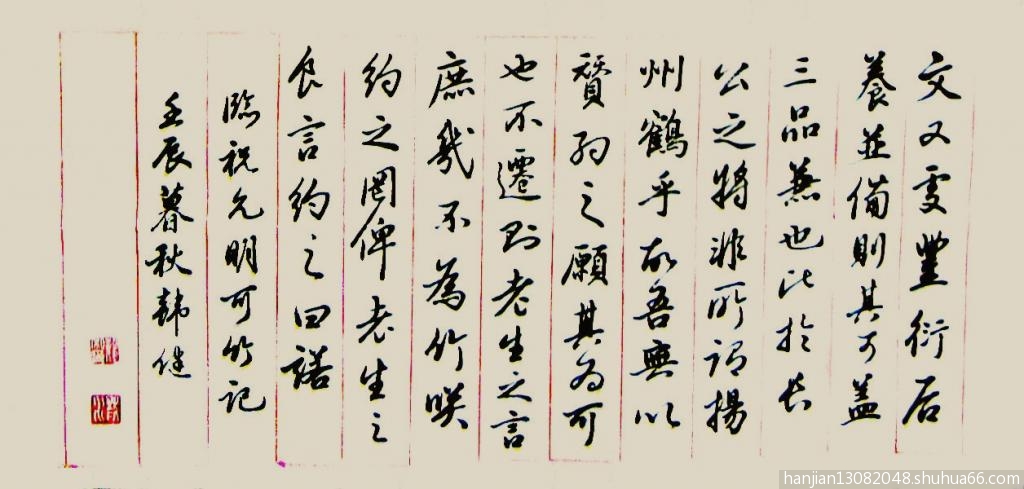 文又豐衍后
養並備則其可盖
三品兼也比於長
公之將非所謂揚
州鶴乎故吾無以
贊之願其為可
也不遷則老生之言
庶幾不為竹咲
約之罔俾老生之
食言約之曰諾
臨祝允明可竹記
壬辰暮秋韓
hanjian13082048.shuhua66.com